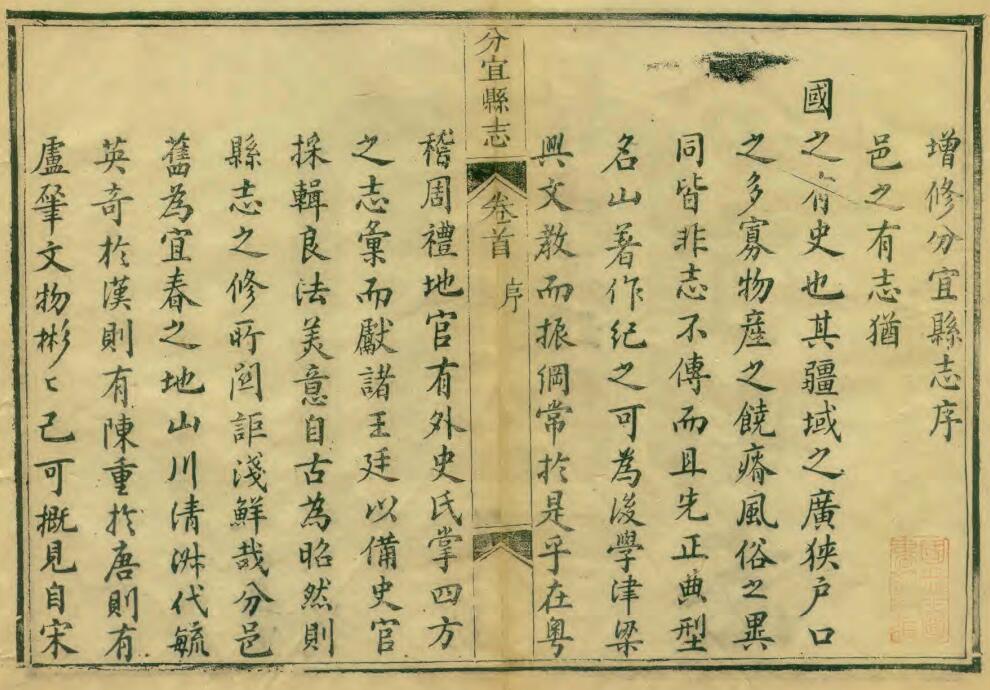 增修分宜縣志序
邑之有志猶
國之有史也其疆域之廣狹户口
之多寡物產之饒瘠風俗之異
同皆非志不傳而且先正典型
名山著作紀之可為後學津梁
興文教而振綱常於是乎在粤
分宜縣志
卷首
序
稽周禮地官有外史氏掌四方
之志彙而獻諸王廷以備史官
採輯良法美意自古為昭然則
縣志之修所關詎淺鮮哉分邑
舊為宜春之地山川清淑代毓
英奇於漢則有陳重於唐則有
盧肇文物彬〻已可概見自宋